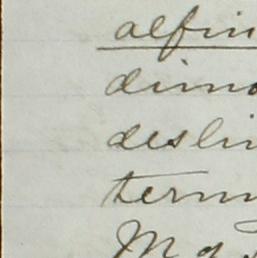 alfin
dimo
deslin
term
M